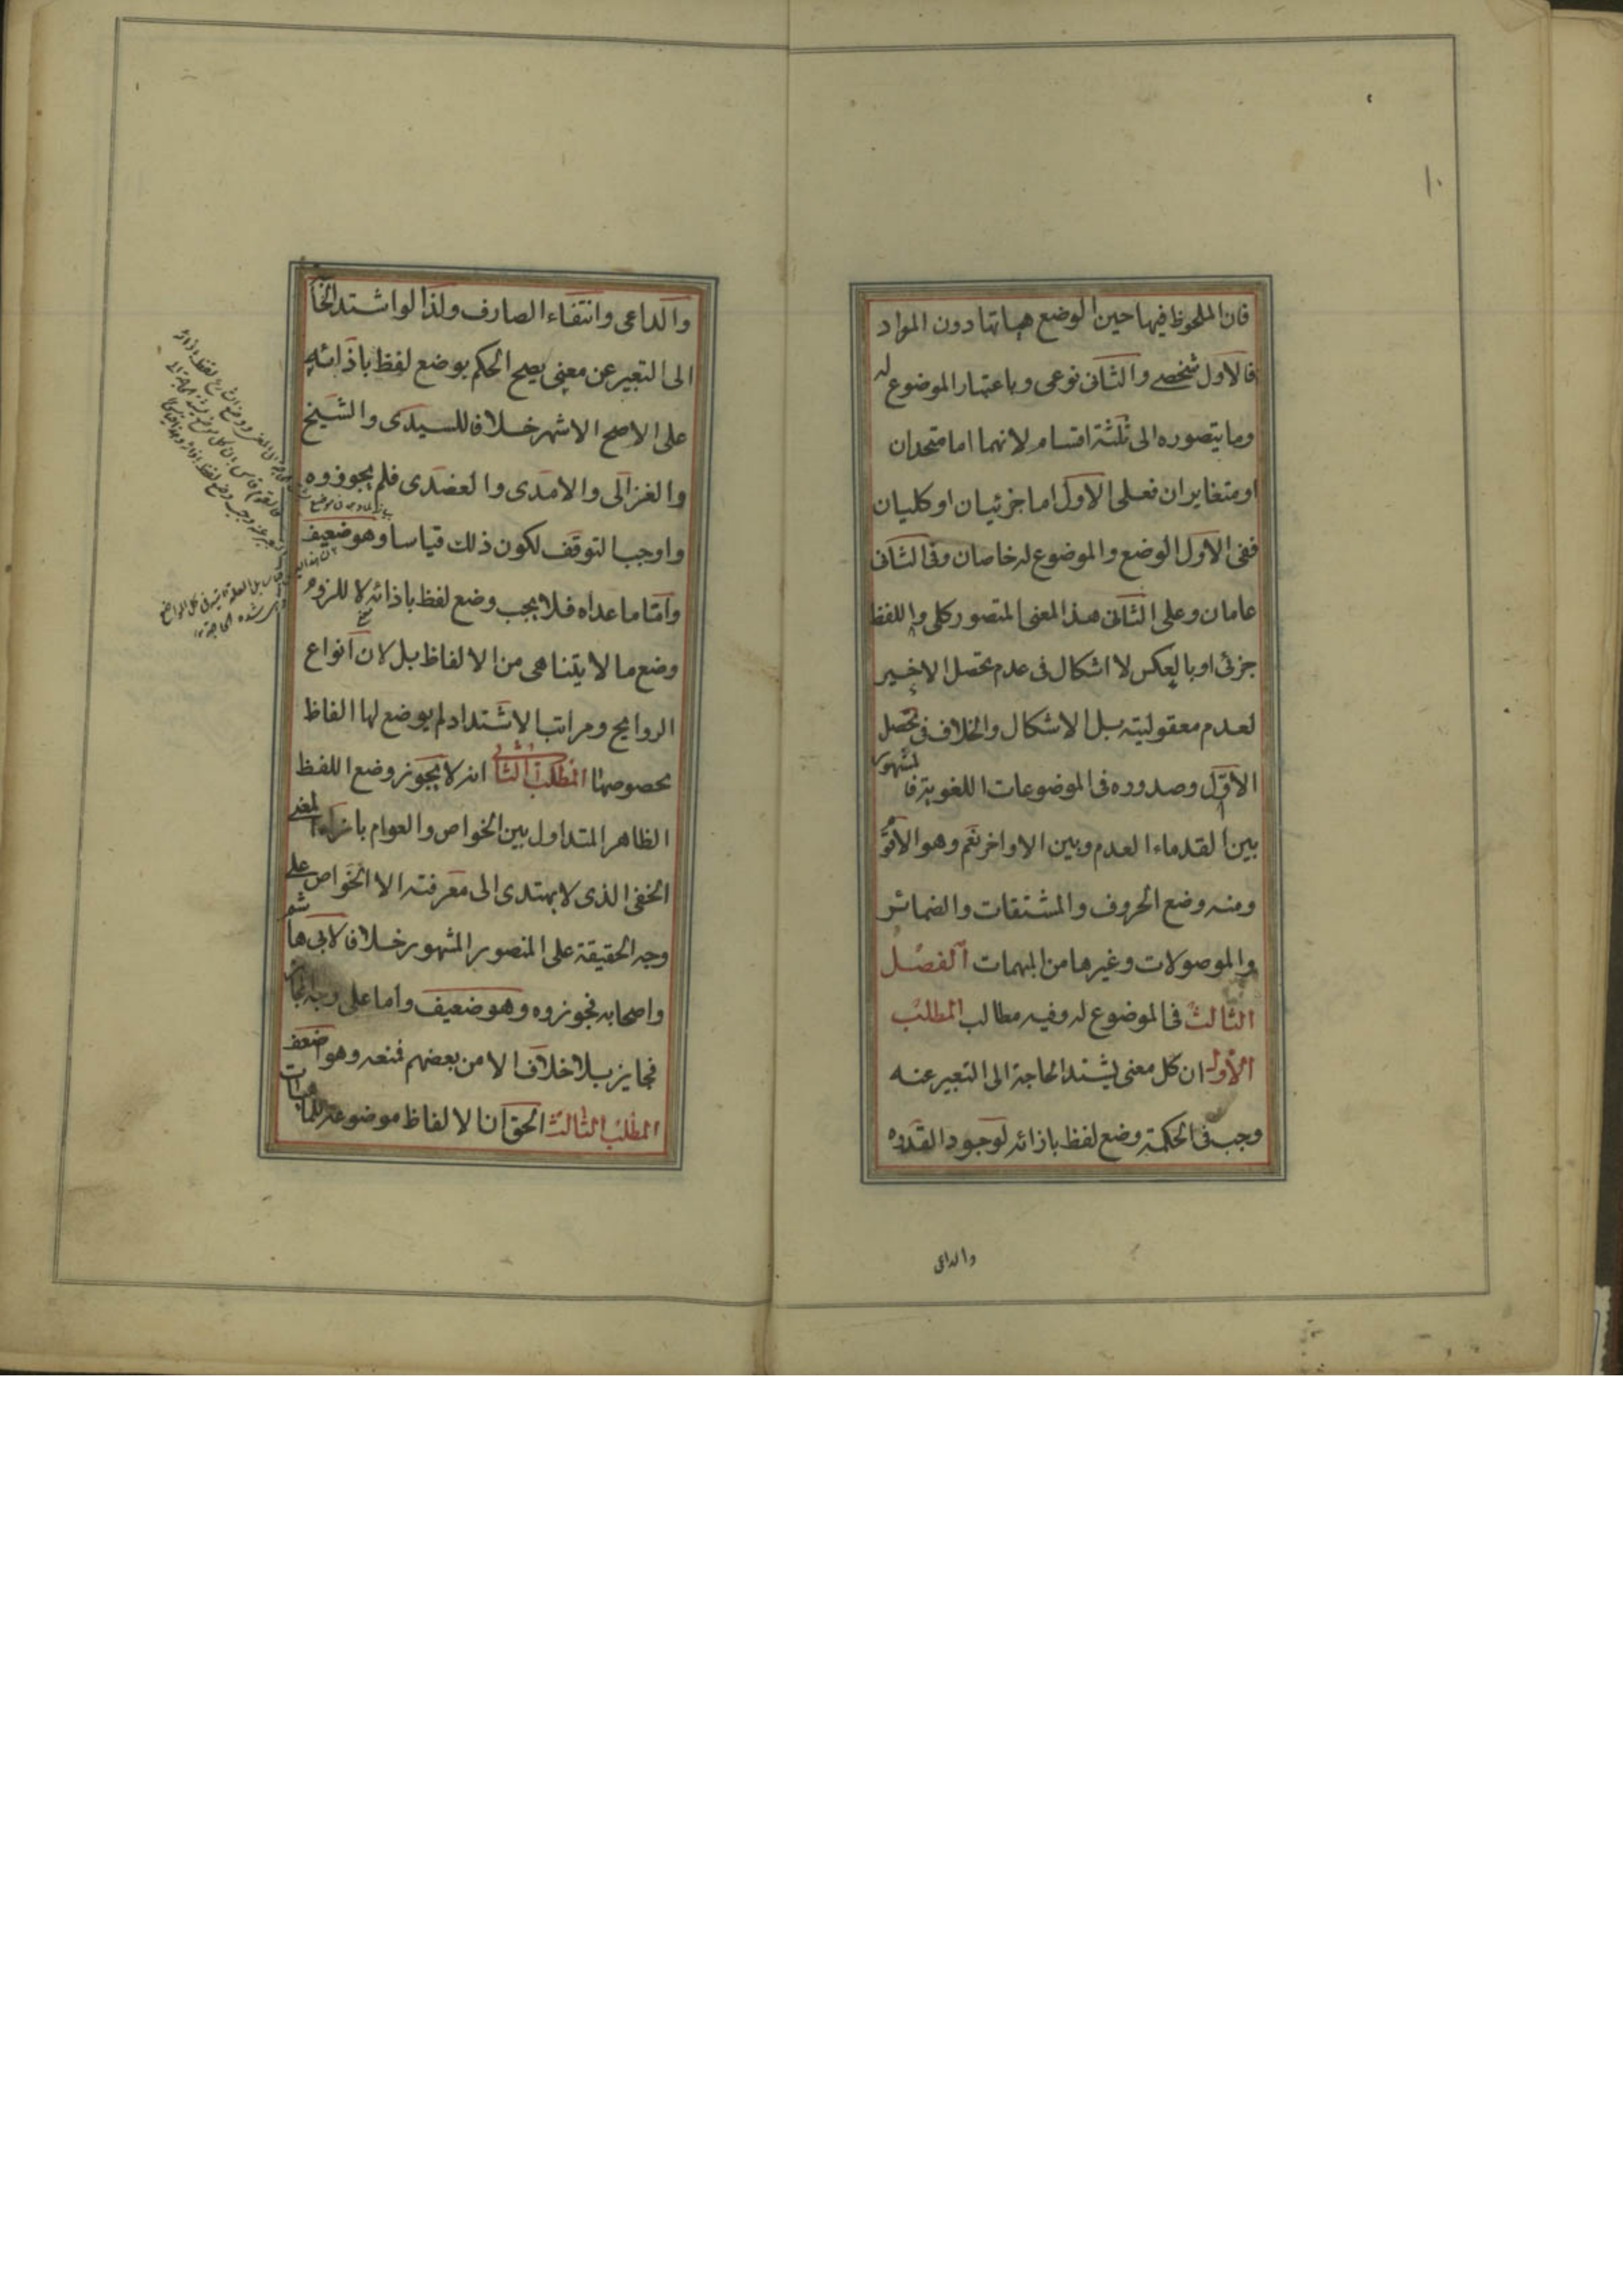 ١٠
فان الملحوظ فيها حين الوضع هياتها دون المواد
فالاول شخصى والثانى نوعى وباعتبار الموضوع له
وما يتصوره الى ثلثة اقسام لانهما اما متحدان
او متغايران فعلى الاول اما جزئيان او كليان
ففى الاول الوضع والموضوع له خاصان وفى الثانى
عامان وعلى الثانى هذا المعنى المتصور كلى واللفظ
جزئى او بالعكس لا اشكال فى عدم تحصل الاخير
لعدم معقوليته بل الاشكال والخلاف فى تحصل
الاول وصدوره فى الموضوعات اللغوية فالمشهور
بين القدماء العدم وبين الاواخر نعم وهو الاقوى
ومنه وضع الحروف والمشتقات والضمائر
والموصولات وغيرها من المبهمات الفصل
الثالث فى الموضوع له وفيه مطالب المطلب
الاول ان كل معنى يشتد الحاجة الى التعبير عنه
وجب فى الحكمة وضع لفظ باذائه لوجود القدرة
والداعى
والداعى وانتفاء الصارف ولذا لو اشتد الحا
الى التعبير عن معنى يصح الحكم بوضع لفظ باذائه
على الاصح الاشهر خلافا للسيدى والشيخ
والغزالى والامدى والعضدى فلم يجوزوه
واوجبا التوقف لكون ذلك قياسا وهو ضعيف
واما ما عداه فلا يجب وضع لفظ باذائه لا للزوم
وضع ما لا يتناهى من الالفاظ بل لان انواع
الروايح ومراتب الاشتداد لم يوضع لها الفاظ
بخصوصها المطلب الثانى انه لا يجوز وضع اللفظ
الظاهر المتداول بين الخواص والعوام بازاء المعنى
الخفى الذى لا يهتدى الى معرفته الا الخواص على
وجه الحقيقة على المنصور المشهور خلافا لابى هاشم
واصحابه فجوزوه وهو ضعيف واما على وجه المجاز
فجايز بلا خلاف الا من بعضهم فمنعه وهو اضعف
المطلب الثالث الحق ان الالفاظ موضوعة للماهيات